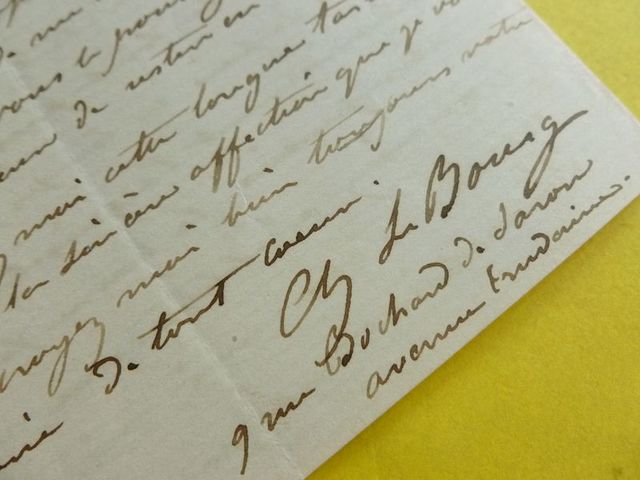 vous le pour
de rester en
moi cette longue
la sincère affection que je vo
croyez moi bien toujours votre
de tout coeur.
Ch Le Bourg
9 rue Bochard de Saron
avenue Trudaine.